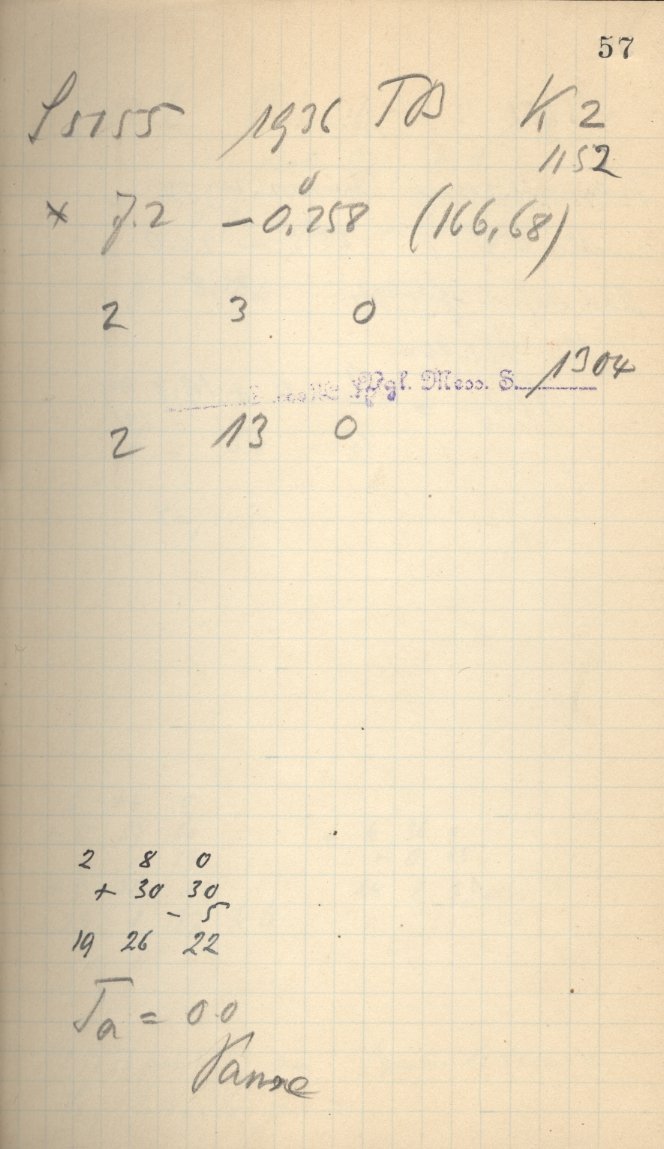 57
S 5155 1936 TB K 2
1152
× 7.2 -0,258 (166,68)
2 3 0
Vgl. Mess. S. 1304
2 13 0
2 8 0
+ 30 30
- 5
19 26 22
Ta = 0.0